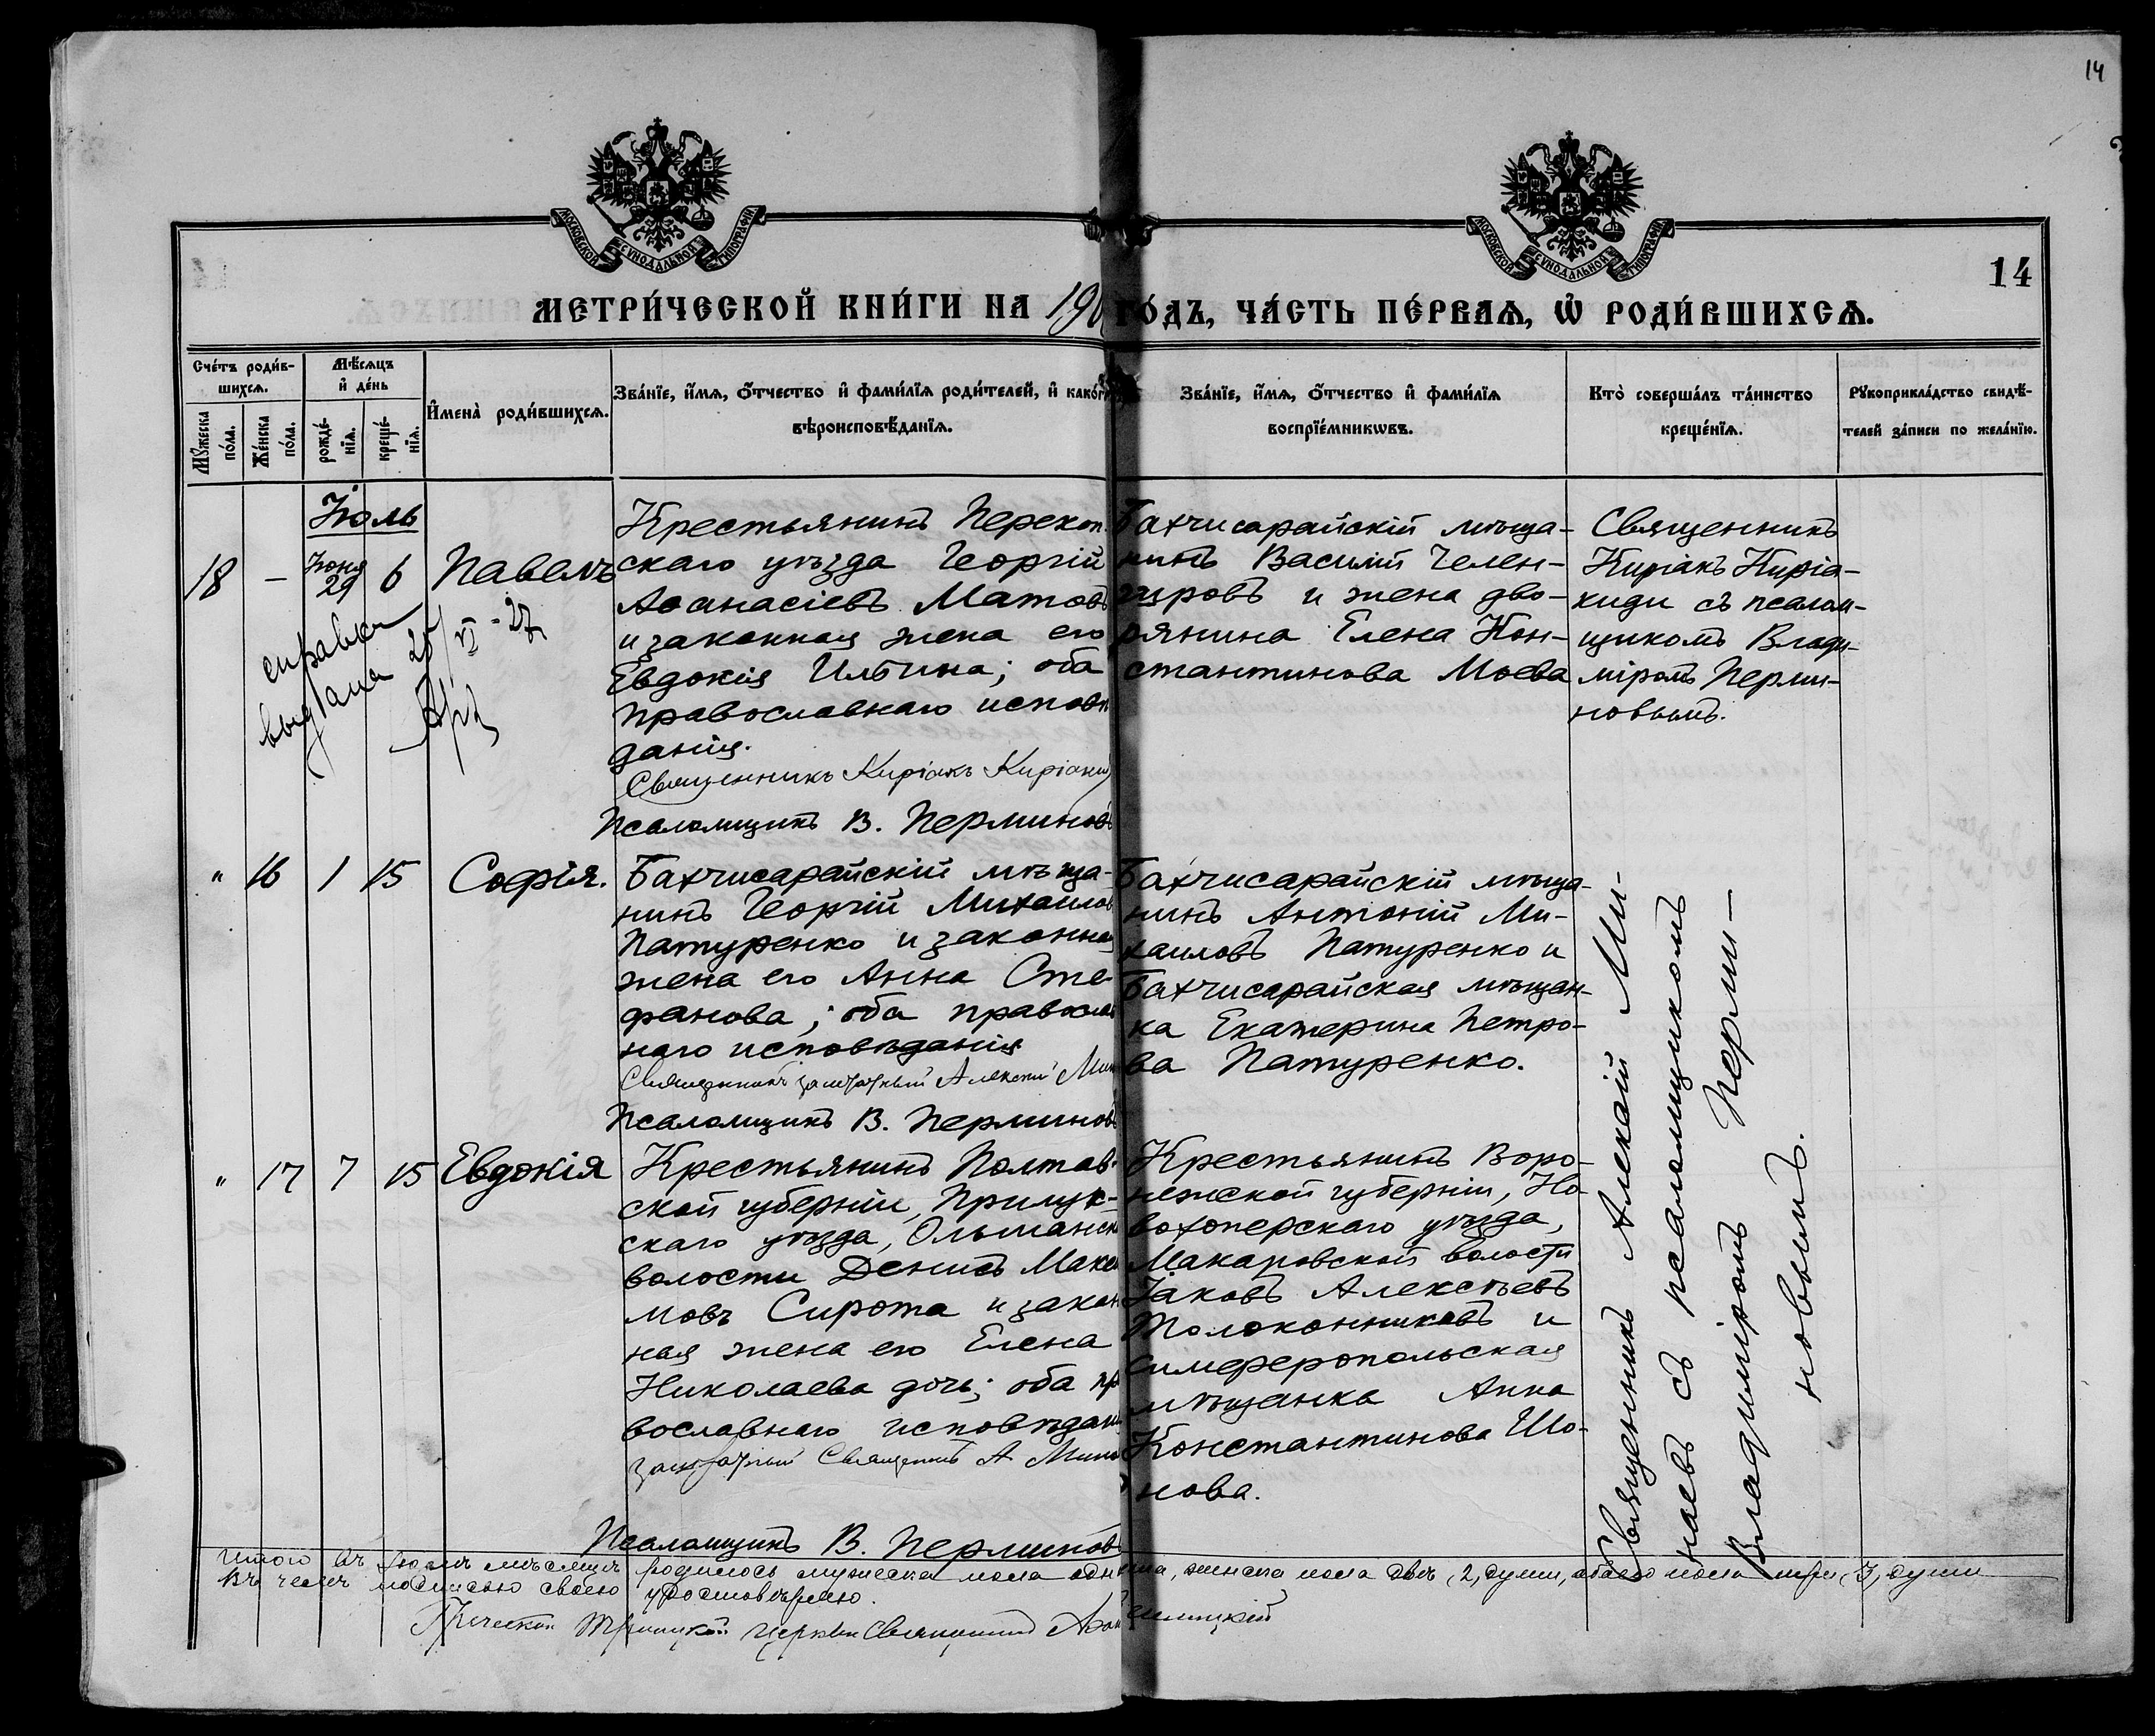 14
МОСКОВСКОЙ СѴНОДАЛЬНОЙ ТИПОГРАФІИ
МОСКОВСКОЙ СѴНОДАЛЬНОЙ ТИПОГРАФІИ
14
МЕТРИ́ЧЕСКОЙ КНИ́ГИ НА 190 ГО́ДЪ, ЧА́СТЬ ПЕ́РВАѦ, Ѽ РОДИ́ВШИХСѦ.
Сче́тъ роди́в-
шихсѧ.
Мꙋ́жеска
по́ла.
Же́нска
по́ла.
Мѣ́сѧцъ
и҆ де́нь
рожде́-
нїѧ.
креще́-
нїѧ.
И҆мена̀ роди́вшихсѧ.
Зва́нїе, и҆́мѧ, ѻ҆́тчество и҆ фами́лїѧ роди́телей, и҆ како́гѡ
вѣроисповѣ́данїѧ.
Зва́нїе, и҆́мѧ, ѻ҆́тчество и҆ фами́лїѧ
воспрїе́мникѡвъ.
Кто̀ соверша́лъ та́инство
креще́нїѧ.
Рꙋкоприкла́дство свидѣ́-
телей за́писи по жела́нїю.
Іюль
18 – Іюня 29 6 Павелъ
справка
выдана 25/VI-27
Крестьянинъ Перекоп-
скаго уѣзда Георгій
Аѳанасіевъ Матовъ
и законная жена его
Евдокія Ильина; оба
православнаго исповѣ
данія.
Священникъ Киріакъ Киріаки
Псаломщикъ В. Перминовъ
Бахчисарайскій мѣща-
нинъ Василій Челен-
гировъ и жена дво-
рянина Елена Кон-
стантинова Моева
Священникъ
Киріакъ Киріа-
киди съ псалом-
щикомъ Влади-
міромъ Перми-
новымъ.
" 16 1 15 Софія.
Бахчисарайскій мѣща-
нинъ Георгій Михаилов
Патуренко и законная
жена его Анна Сте-
фанова; оба православ
наго исповѣданія
Священникъ заштатный Алексій Мин
Псаломщикъ В. Перминовъ
Бахчисарайскій мѣща-
нинъ Антоній Ми-
хаиловъ Патуренко и
Бахчисарайская мѣщан-
ка Екатерина Петро-
ва Патуренко.
Священникъ Алексій Ми-
наевъ съ псаломщикомъ
Владиміромъ Перми-
новымъ.
" 17 7 15 Евдокія
Крестьянинъ Полтав-
ской губерніи, Прилук-
скаго уѣзда, Ольшанск
волости Денисъ Макси
мовъ Сирота и закон
ная жена его Елена
Николаева дочь; оба пр
вославнаго исповѣдан
заштатный Священникъ А Мина
Псаломщикъ В. Перминовъ
Крестьянинъ Воро-
нежской губерніи, Но-
вохоперскаго уѣзда,
Макаровской волости
Іаковъ Алексѣевъ
Толоконниковъ и
симферопольская
мѣщанка Анна
Константинова Шо-
нова.
Итого въ Іюлѣ мѣсяцѣ родилось мужеска пола одна, женска пола двѣ, 2, души, обоего пола три, 3, души
Въ чемъ подписью своею удостовѣряю.
Греческой Троицкой церкви Священникъ